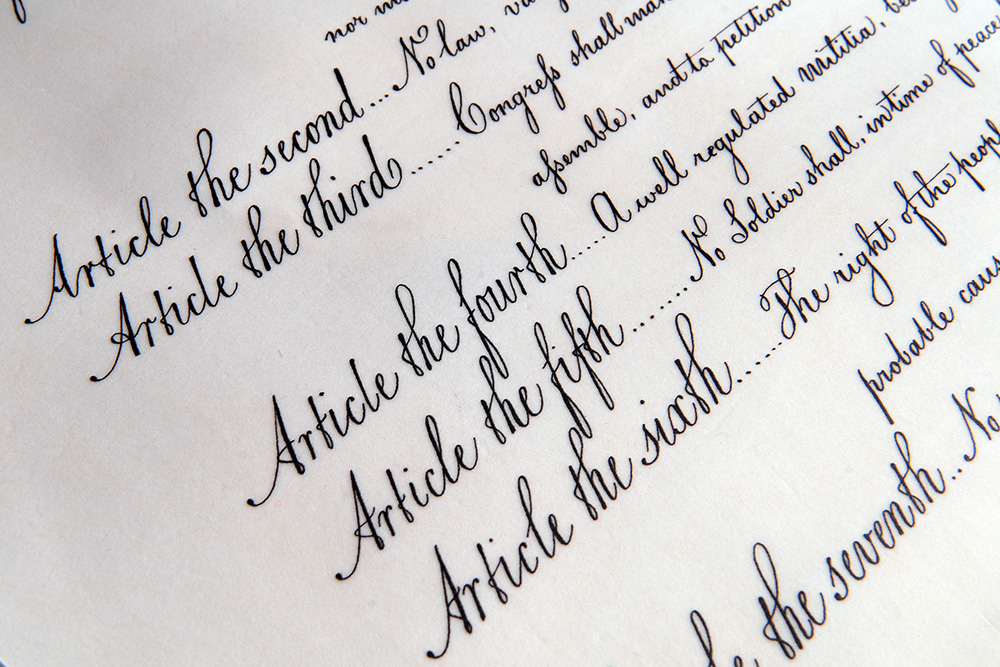 nor
Article the second ... No law,
Article the third ...... Congreſs shall
aſsemble, and to petition
Article the fourth ..... A well regulated militia,
Article the fifth ....... No Soldier shall, in time of peace
Article the sixth ...... The right of the
probable
the seventh .. No